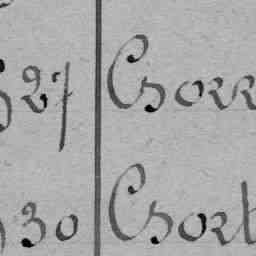 27 Csorr
30 Csort